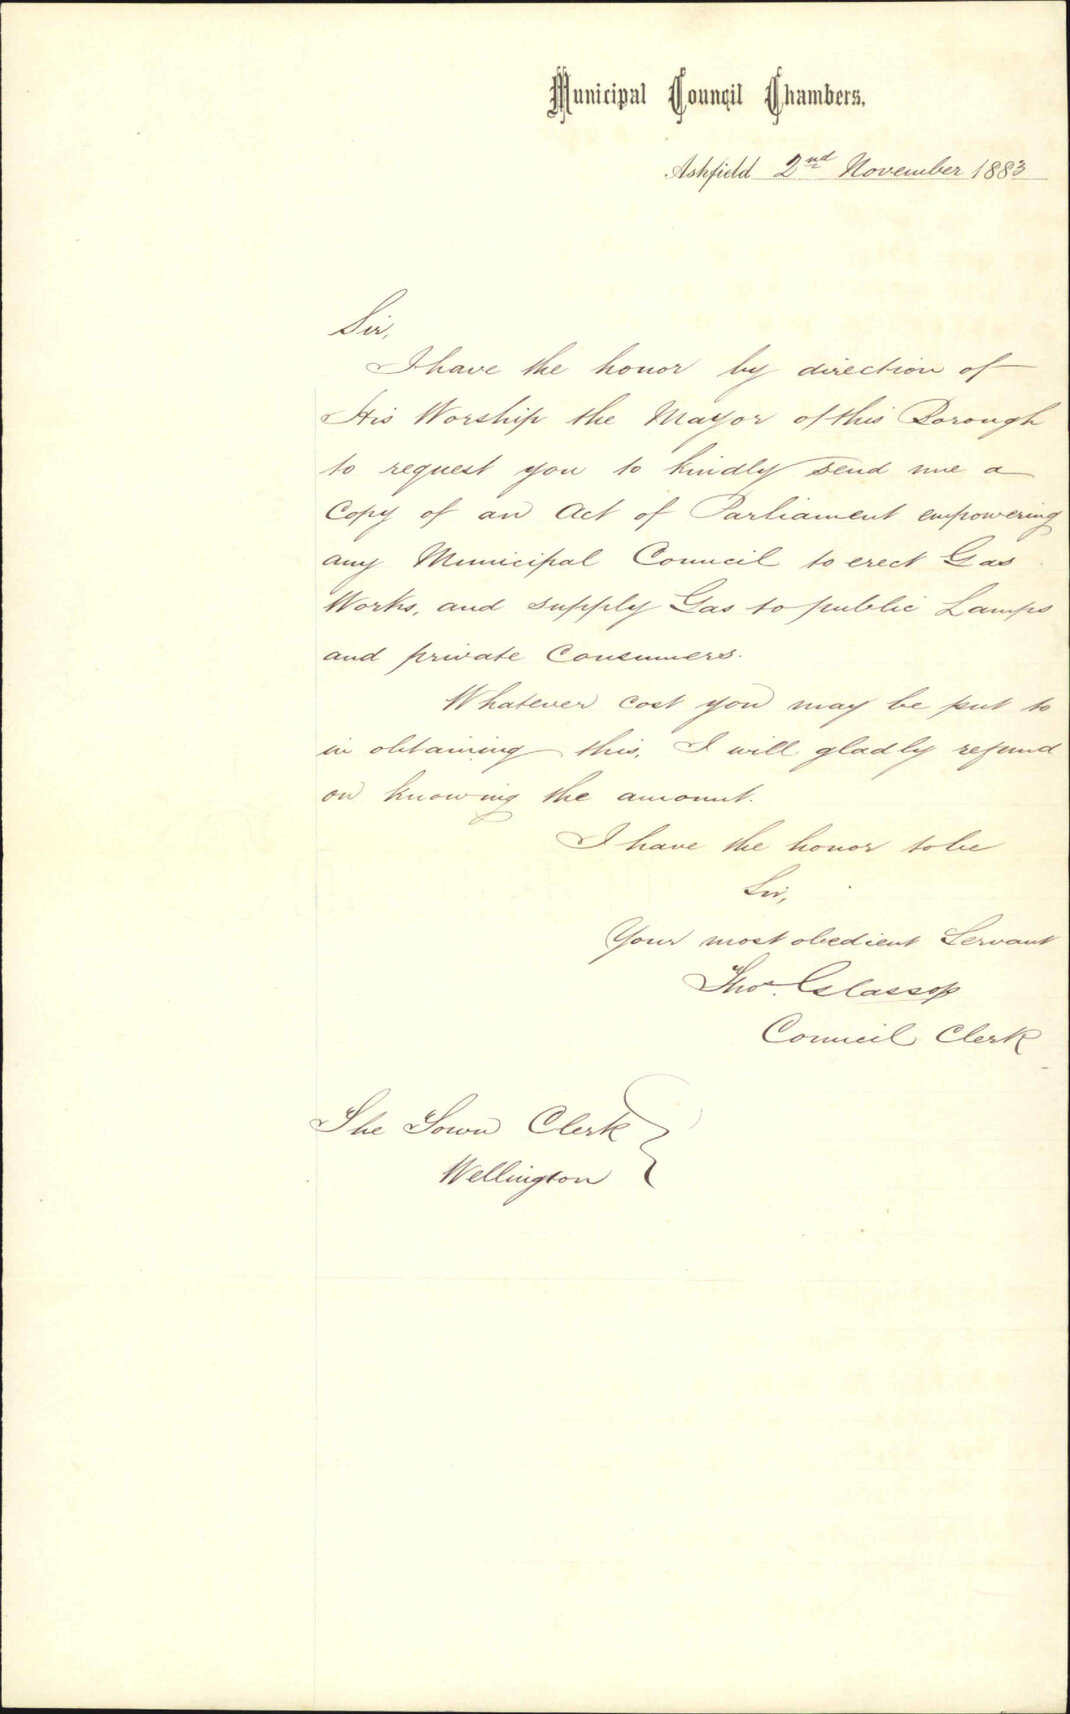 Municipal Council Chambers,
Ashfield 2nd November 1883
Sir,
I have the honor by direction of
His Worship the Mayor of this Borough
to request you to kindly send me a
Copy of an Act of Parliament empowering
any Municipal Council to erect Gas
Works, and supply Gas to public Lamps
and private Consumers.
Whatever cost you may be put to
in obtaining this, I will gladly refund
on knowing the amount.
I have the honor to be
Sir,
Your most obedient Servant
Thos. Glassop
Council Clerk
The Town Clerk
Wellington